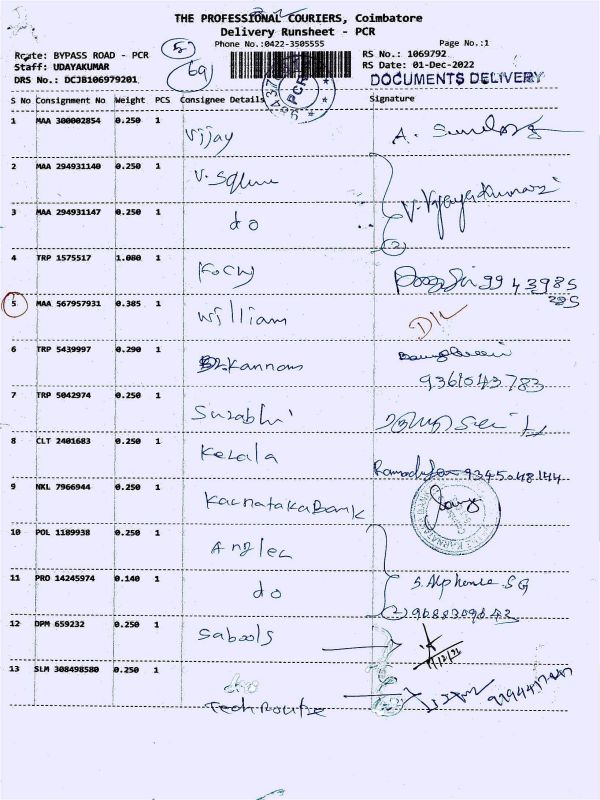 THE PROFESSIONAL COURIERS, Coimbatore
Delivery Runsheet - PCR
Phone No.:0422-3505555
Page No.:1
Route: BYPASS ROAD - PCR
Staff: UDAYAKUMAR
DRS No.: DCJB106979201
5
69
PCR
RS No.: 1069792
RS Date: 01-Dec-2022
DOCUMENTS DELIVERY
S No Consignment No Weight PCS Consignee Details Signature
1 MAA 300002854 0.250 1 Vijay
2 MAA 294931140 0.250 1 V. Squre
V. Vijayakumari
3 MAA 294931147 0.250 1 do
2
4 TRP 1575517 1.080 1 99 43985
5 MAA 567957931 0.385 1 William D/L
6 TRP 5439997 0.290 1 Kannan
9361043783
7 TRP 5042974 0.250 1 Surabhi
8 CLT 2401683 0.250 1 Kerala 9345048144
9 NKL 7966944 0.250 1 Karnataka Bank
10 POL 1189938 0.250 1 Angler
11 PRO 14245974 0.140 1 do S. Alphonse SG
2
12 DPM 659232 0.250 1 Sabools
13 SLM 308498580 0.250 1
Tech Route